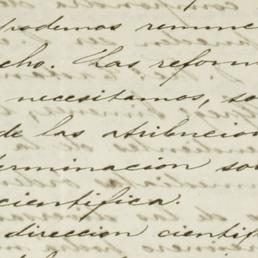 podemos renunc
cho. Las reform
necesitamos, so
de las atribucion
erminacion so
cientifica.
direccion cientif